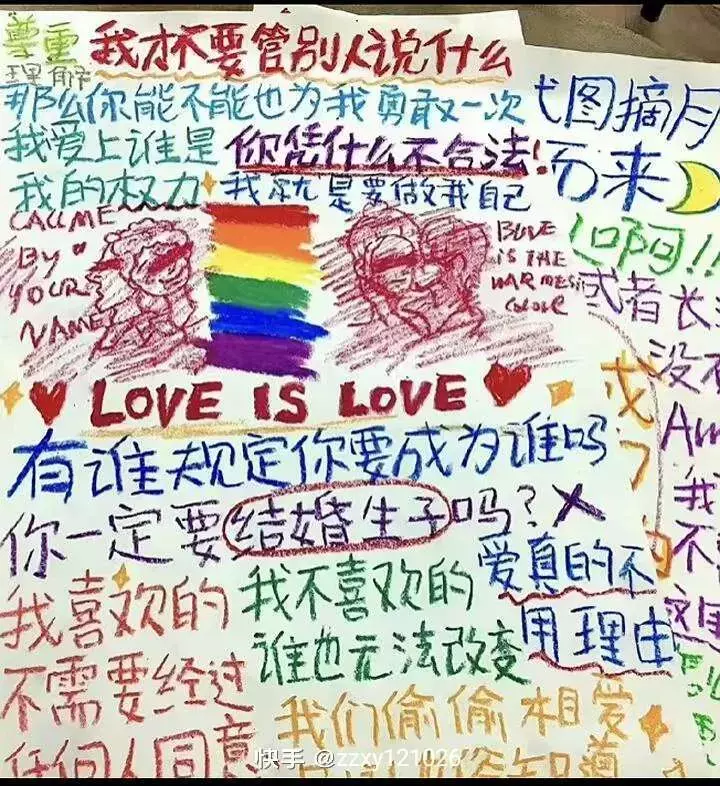 尊重
理解
我才不要管别人说什么
那么你能不能也为我勇敢一次
我爱上谁是
我的权力
你凭什么不合法!
我就是要做我自己
CALL ME
BY
YOUR
NAME
BLUE
IS THE
WARMEST
COLOR
LOVE IS LOVE
有谁规定你要成为谁吗
你一定要结婚生子吗?
我喜欢的
不需要经过
任何人同意
我不喜欢的
谁也无法改变
爱真的不
用理由
我们偷偷相爱
弋图摘月
而来
啊!!
或者长
没有
我
不
这里
快手 @zzxy121026